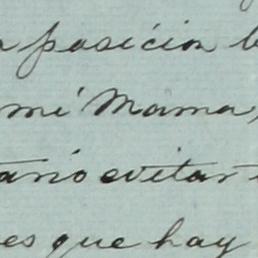 posicion
mi Mama,
evitar
es que hay